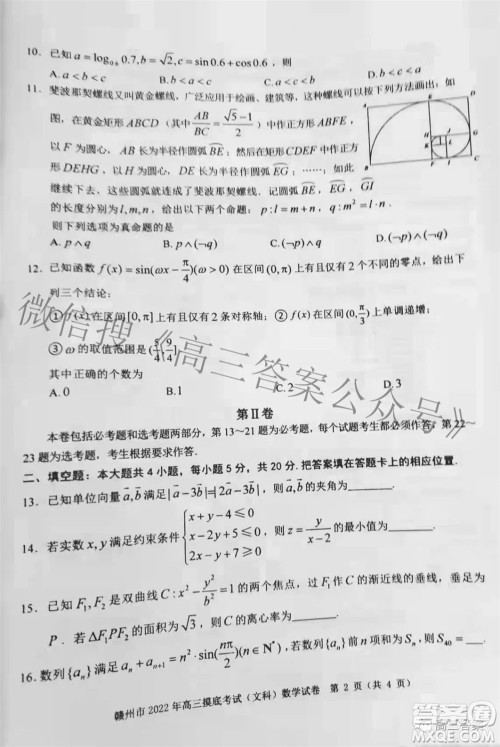 10. 已知 a = log₀.₆ 0.7, b = √2, c = sin0.6 + cos0.6，则
A. a < b < c B. a < c < b C. b < c < a D. b < a < c
11. 斐波那契螺线又叫黄金螺线，广泛应用于绘画、建筑等，这种螺线可以按下列方法画出：如
图，在黄金矩形 ABCD（其中 AB/BC = (√5-1)/2）中作正方形 ABFE，
以 F 为圆心，AB 长为半径作圆弧 BE；然后在矩形 CDEF 中作正方
形 DEHG，以 H 为圆心，DE 长为半径作圆弧 EG；……；如此
继续下去，这些圆弧就连成了斐波那契螺线．记圆弧 BE，EG，GI
的长度分别为 l, m, n，给出以下两个命题：p: l = m + n，q: m² = l·n．
则下列选项为真命题的是
A. p∧q B. p∧(¬q) C. (¬p)∧q D. (¬p)∧(¬q)
A E D
I
J
H G
B F C
12. 已知函数 f(x) = sin(ωx - π/4)(ω > 0) 在区间 (0, π) 上有且仅有 2 个不同的零点，给出下
列三个结论：
① f(x) 在区间 [0, π] 上有且仅有 2 条对称轴；② f(x) 在区间 (0, π/3) 上单调递增；
③ ω 的取值范围是 (5/4, 9/4]．
其中正确的个数为
A. 0 B. 1 C. 2 D. 3
第Ⅱ卷
本卷包括必考题和选考题两部分，第 13～21 题为必考题，每个试题考生都必须作答．第 22-
23 题为选考题，考生根据要求作答．
二、填空题：本大题共 4 小题，每小题 5 分，共 20 分．把答案填在答题卡上的相应位置．
13. 已知单位向量 a, b 满足 |a - 3b| = |2a - 3b|，则 a, b 的夹角为______．
14. 若实数 x, y 满足约束条件 {x + y - 4 ≤ 0, x - 2y + 5 ≤ 0, 2x - y + 7 ≥ 0，则 z = y/(x-2) 的最小值为______．
15. 已知 F₁, F₂ 是双曲线 C: x² - y²/b² = 1 的两个焦点，过 F₁ 作 C 的渐近线的垂线，垂足为
P．若 △F₁PF₂ 的面积为 √3，则 C 的离心率为______．
16. 数列 {aₙ} 满足 aₙ = n²·sin(nπ/2)(n∈N*)，若数列 {aₙ} 前 n 项和为 Sₙ，则 S₄₀ = ____．
赣州市 2022 年高三摸底考试（文科）数学试卷 第 2 页（共 4 页）
微信搜《高三答案公众号》